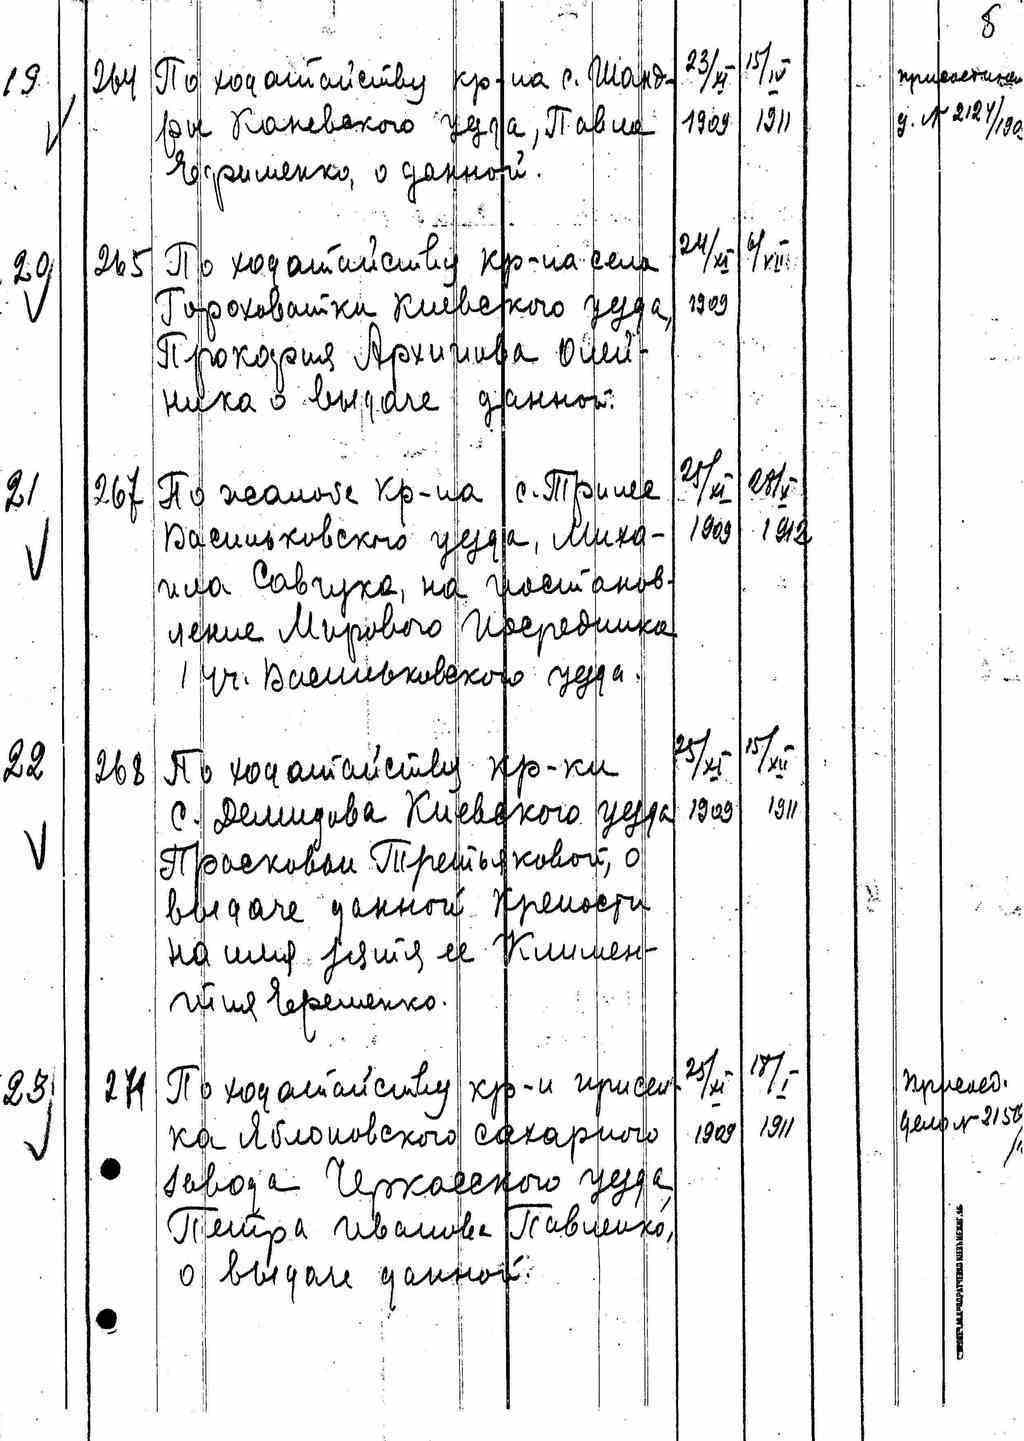 8
19 264 По ходатайству кр-на с. Шанд- 23/XI 15/IV присоединен
ры Каневского уезда, Павла 1909 1911 д. № 2124/190
Ефименко, о данной.
20 265 По ходатайству кр-на села 24/XI 6/XII
Гороховатки Киевского уезда, 1909
Прокофия Архипова Олей-
ника о выдаче данной.
21 267 По жалобе кр-на с. Трилес 25/XI 28/V
Васильковского уезда, Миха- 1909 1912
ила Савчука, на постанов-
ление Мирового Посредника
1 уч. Васильковского уезда.
22 268 По ходатайству кр-ки 25/XI 15/XII
с. Демидова Киевского уезда 1909 1911
Прасковьи Третьяковой, о
выдаче данной крепости
на имя зятя ее Климен-
тия Еременко.
23 271 По ходатайству кр-н присел- 25/XI 18/I Присоед.
ка Яблоновского сахарного 1909 1911 дело № 215
завода Черкасского уезда,
Петра Иванова Павленко,
о выдаче данной.